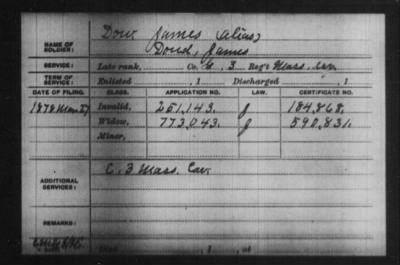 Dow James (alias)
NAME OF SOLDIER: Doud, James
SERVICE: Late rank, Co. G. 3 Reg't Mass. Cav.
TERM OF SERVICE: Enlisted , 1 Discharged , 1
DATE OF FILING. CLASS. APPLICATION NO. LAW. CERTIFICATE NO.
1878 Invalid, 251,143. 184,868.
Widow, 773,043. 590,831.
Minor,
ADDITIONAL SERVICES: C. 3 Mass. Cav.
REMARKS: